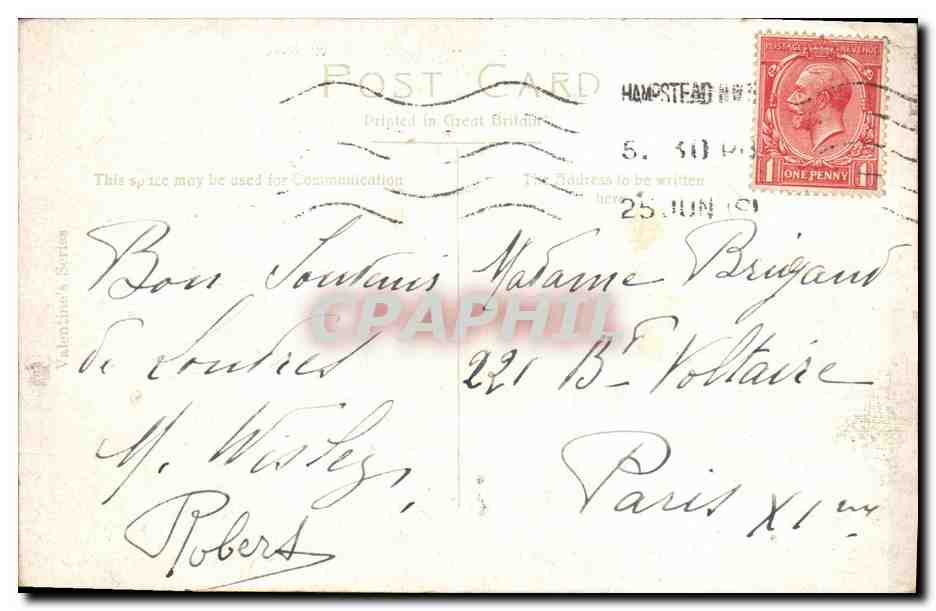 POST CARD
Printed in Great Britain
This space may be used for Communication
The Address to be written
here
HAMPSTEAD N.W.3
5. 30 PM
25 JUN 19
POSTAGE REVENUE
1 ONE PENNY 1
Valentine's Series
Bon Souvenir
de Londres
M. Wisley,
Robert
Madame Brigand
221 Bd Voltaire
Paris XIme
CPAPHIL